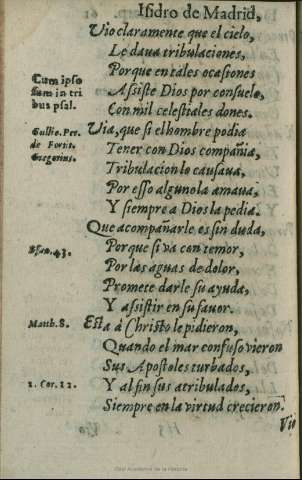 Isidro de Madrid,
Vio claramente que el cielo,
Le daua tribulaciones,
Porque en tales ocasiones
Cum ipso
Assiste Dios por consuelo,
sum in tri
Con mil celestiales dones.
bus psal.
Via, que si el hombre podia
Tener con Dios compañia,
de Fortit.
Tribulacion lo causaua,
Gregorius.
Por esso alguno la amaua,
Y siempre a Dios la pedia.
Que acompañarle es sin duda,
Porque si va con temor,
43.
Por las aguas de dolor,
Promete darle su ayuda,
Y assistir en su fauor.
Esta à Christo le pidieron,
Math. 8.
Quando el mar confuso vieron
Sus Apostoles turbados,
Y al fin sus atribulados,
2. Cor. 12.
Siempre en la virtud crecieron.
Vio
Real Academia de la Historia